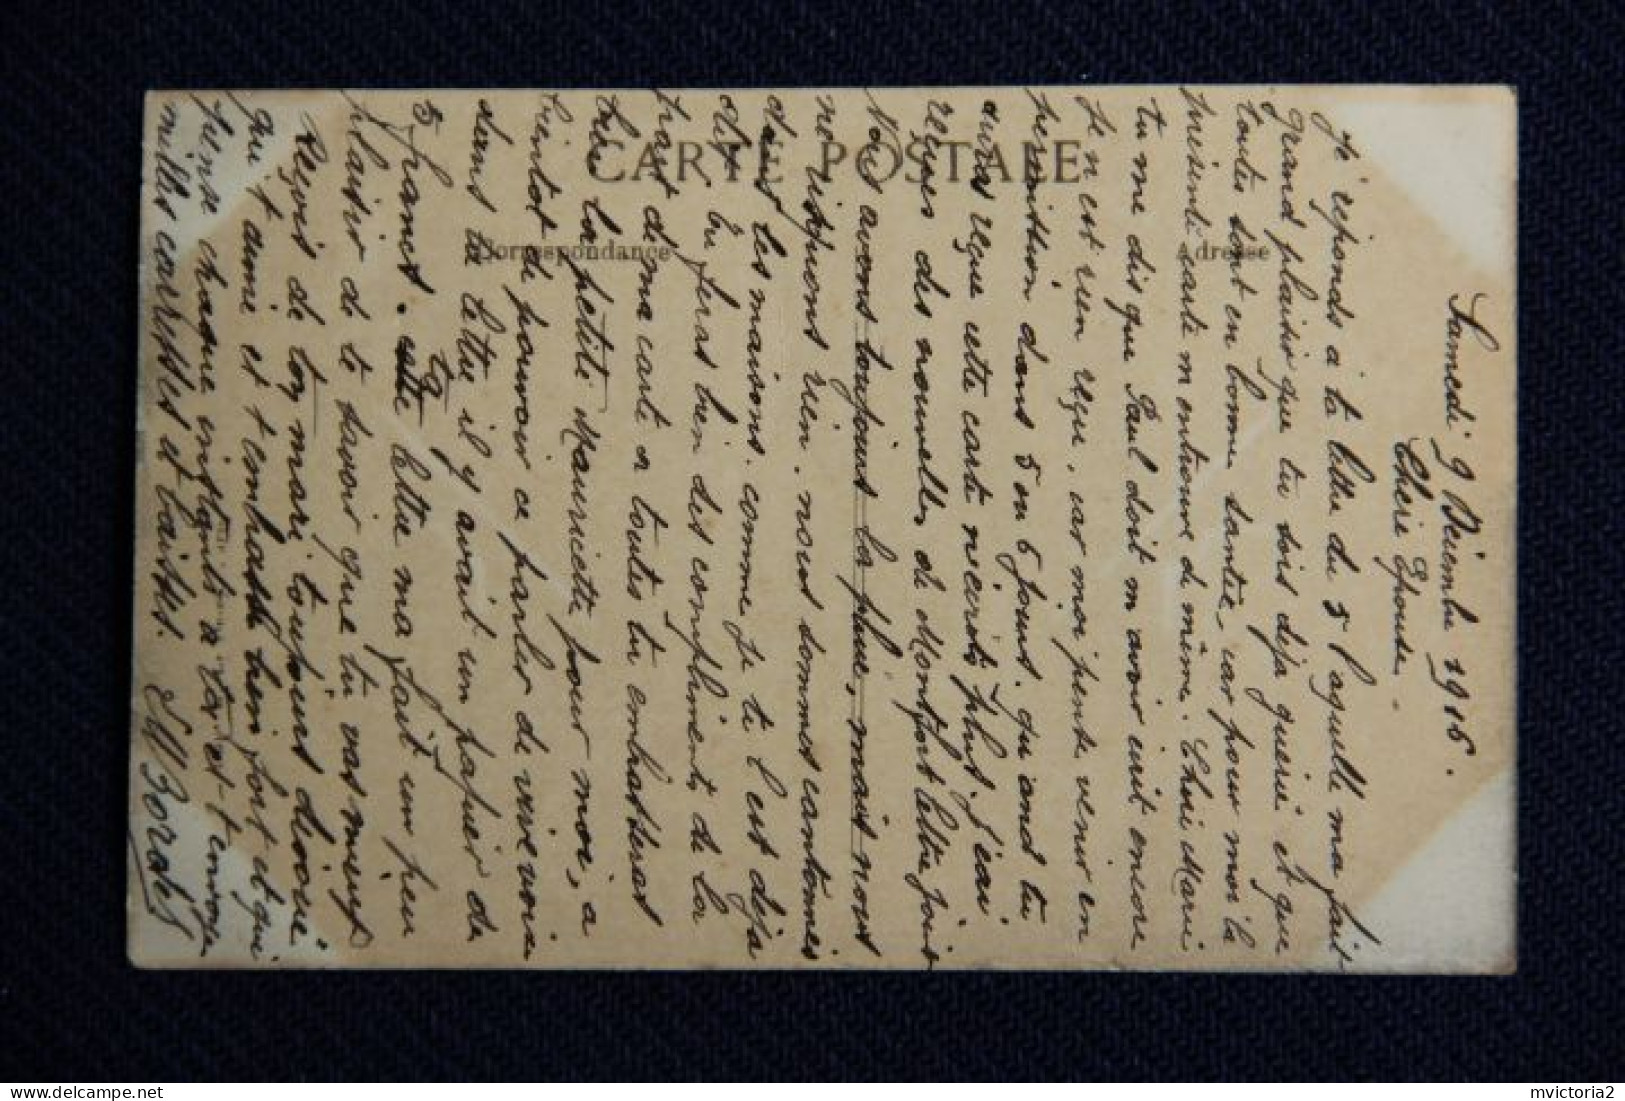 CARTE POSTALE
Correspondance
Adresse
Samedi 9 Décembre 1916.
Chère Epouse.
Je réponds à ta lettre du 5 laquelle ma fait
grand plaisir que tu sois déja guérie et que
toutes sont en bonne santée, car pour moi la
présente carte m'en trouve de même. Cheri Marie
tu me dis que Paul doit m'avoir écrit encore
Je n'est rien reçu, car moi pense venir en
permission dans 5 ou 6 jours. quand tu
auras reçue cette carte n'écrits plus. J'ai
reçues des nouvelles de Montfort lettre
Nous avons toujours la pluie, mais nous
ne risquons rien. nous sommes cantonnés
dans les maisons. comme je te l'est déja
dit. tu feras bien des compliments de la
part di ma carte a toutes tu embrasseras
bien la petite Mauricette pour moi, a
bientot de pouvoir ce parler de vive voix
dans ta lettre il y avait un papier de
5 francs. ta lettre ma fait un peu
plaisir de te savoir que tu vas mieux
Reçois de ton mari toujours dévoué
qui t'aime et t'embrasse bien fort et qui
pense chaque instants a toi et t'envoye
milles caresses et baisers.